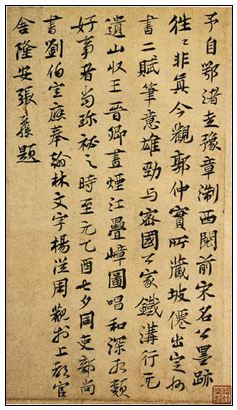 不自鄂渚至豫章淛西閱前宋名公墨跡
往往非真今觀郭仲實所藏坡僊出定州
書二賦筆意雄勁与密國公家鐵溝行元
遺山收王晉卿畫煙江疊嶂圖唱和深相類
好事者當珍祕之時至元乙酉七夕同吏部尚
書劉伯宣應奉翰林文字楊從周觀於上都官
舍隆安張孔孫題